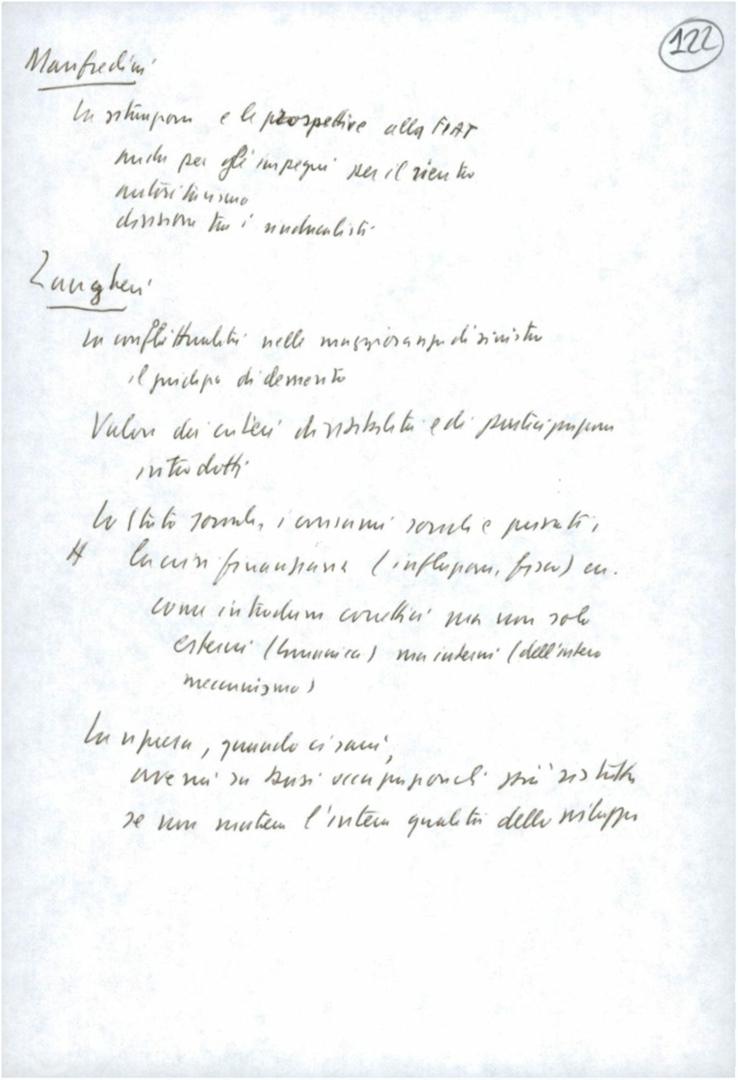 122
Manfredini
La situazione e le prospettive alla FIAT
anche per gli impegni per il rientro
autoritarismo
divisione tra i sindacalisti
Zangheri
La conflittualità nelle maggioranze di sinistra
il principio di demerito
Valore dei criteri di visibilità e di partecipazione
introdotti
Lo Stato sociale, i consumi sociali e privati,
La crisi finanziaria (inflazione, fisco) ecc.
come introdurre correttivi ma non solo
esterni (humanica) ma interni (dell'intero
meccanismo)
La ripresa, quando ci sarà,
avverrà su basi occupazionali più ristrette
se non muterà l'intera qualità dello sviluppo